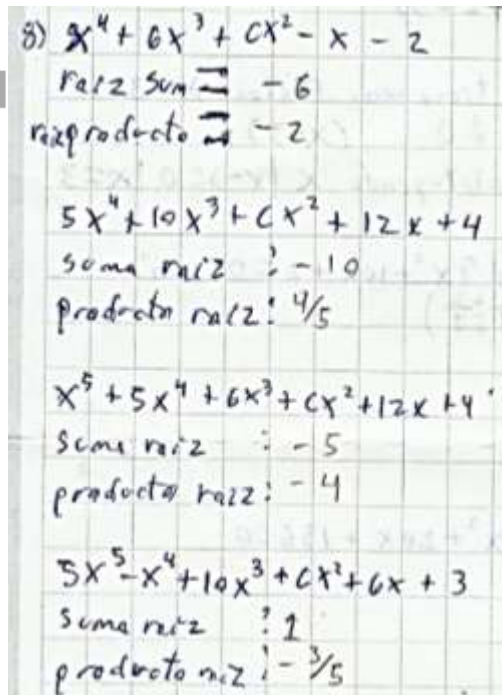 8) x⁴ + 6x³ + cx² - x - 2
raiz sum = -6
raizproducto = -2
5x⁴ + 10x³ + cx² + 12x + 4
suma raiz : -10
producto raiz: 4/5
x⁵ + 5x⁴ + 6x³ + cx² + 12x + 4
suma raiz : -5
producto raiz: -4
5x⁵ - x⁴ + 10x³ + cx² + 6x + 3
suma raiz : 1
producto raiz : -3/5